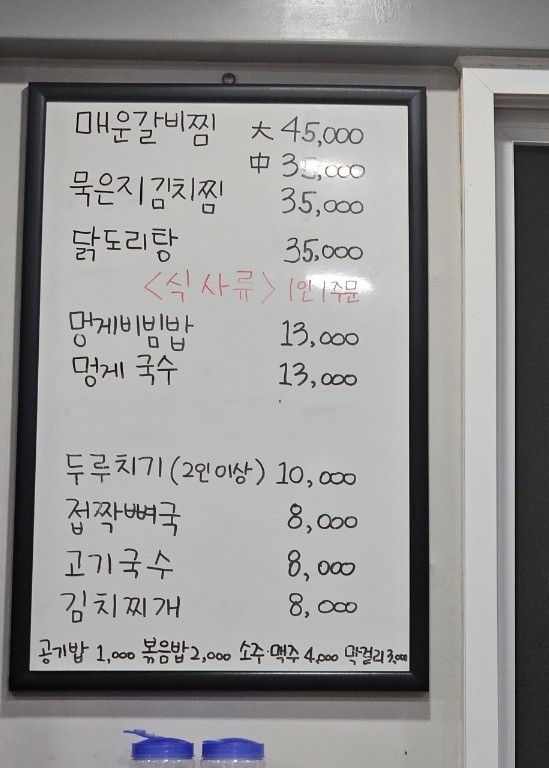 매운갈비찜 大 45,000
中 35,000
묵은지김치찜 35,000
닭도리탕 35,000
<식사류> 1인1주문
멍게비빔밥 13,000
멍게 국수 13,000
두루치기 (2인이상) 10,000
접짝뼈국 8,000
고기국수 8,000
김치찌개 8,000
공기밥 1,000 볶음밥 2,000 소주·맥주 4,000 막걸리 3,000